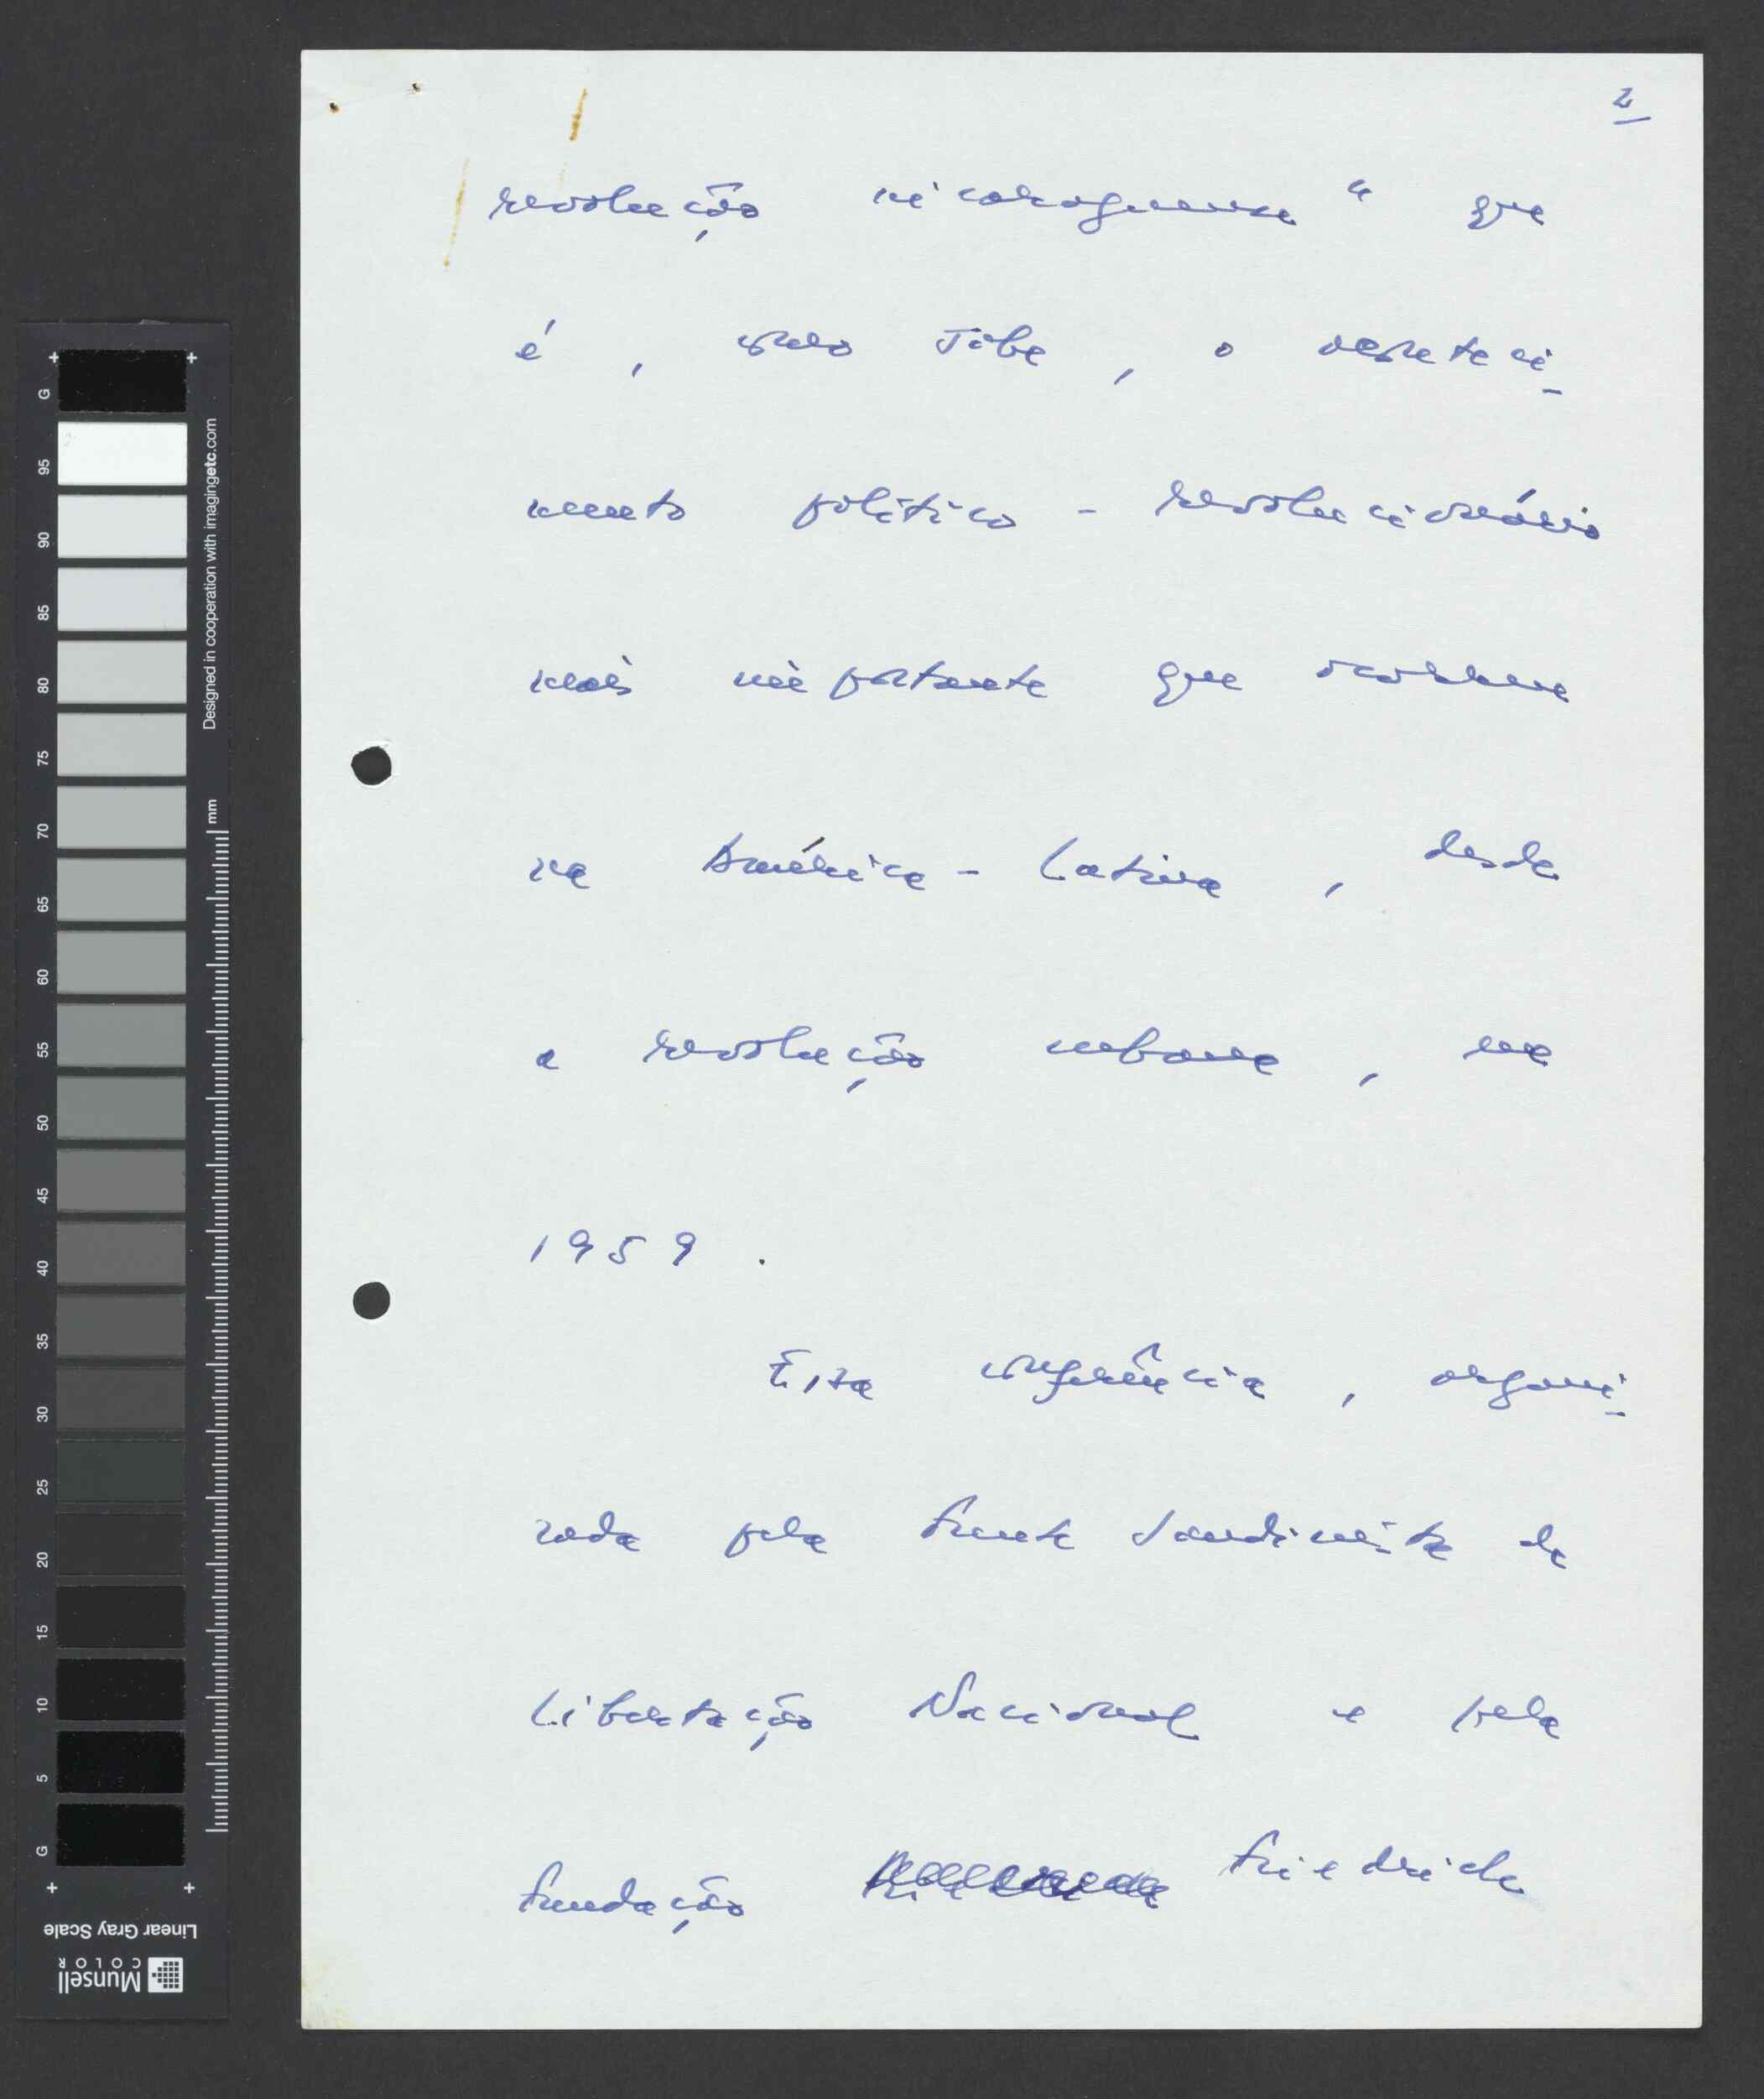 2
revolução nicaraguense" que
é, sem dúvida, o aconteci-
mento político-revolucionário
mais importante que ocorreu
na América-Latina, desde
a revolução cubana, em
1959.
Essa conferência, organi-
zada pela Frente Sandinista de
Libertação Nacional e pela
Fundação Friedrich
G 95 90 85 80 75 70 65 60 55 50 45 40 35 30 25 20 15 10 5 G
Designed in cooperation with imagingetc.com
mm
Linear Gray Scale
Munsell
COLOR